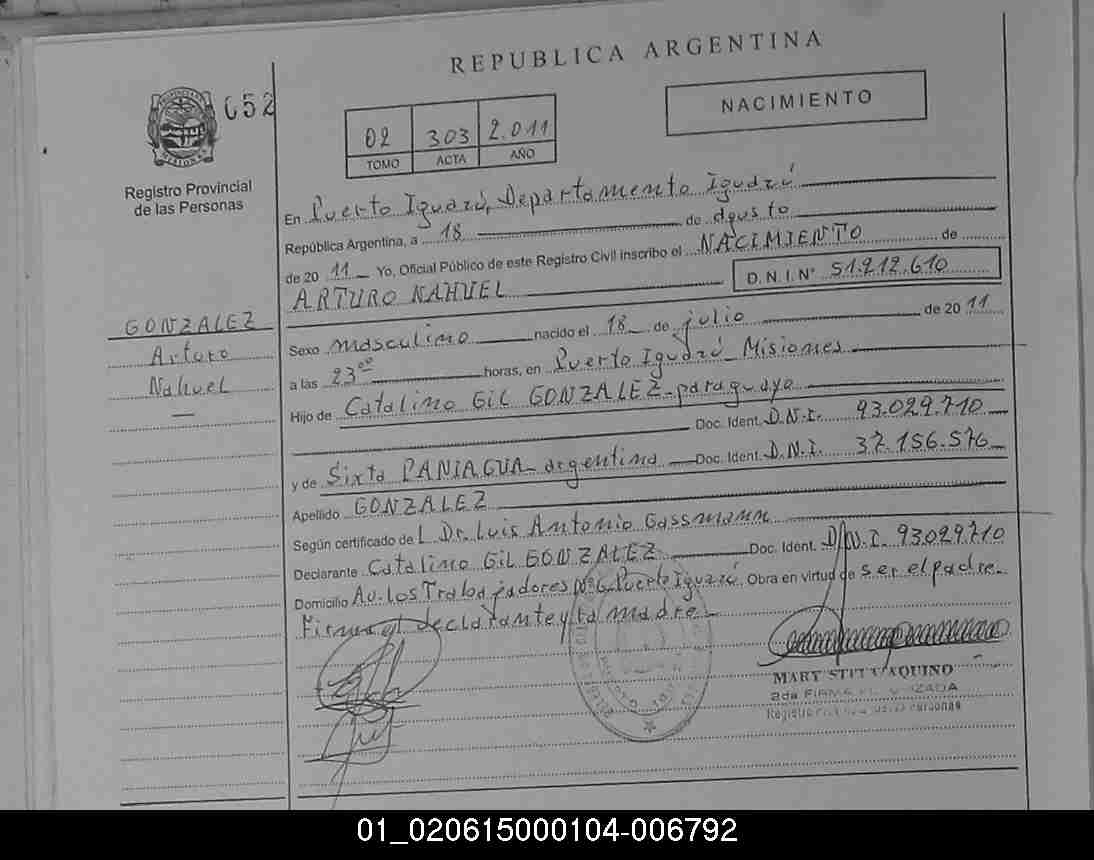 REPUBLICA ARGENTINA
NACIMIENTO
052
02 303 2.011
TOMO ACTA AÑO
Registro Provincial
de las Personas
GONZALEZ
Arturo
Nahuel
En Puerto Iguazú, Departamento Iguazú
República Argentina, a 18 de agosto
de 20 11 Yo, Oficial Público de este Registro Civil inscribo el NACIMIENTO de
ARTURO NAHUEL D.N.I.Nº 51.212.610
Sexo masculino nacido el 18 de julio de 20 11
a las 23ºº horas, en Puerto Iguazú Misiones
Hijo de Catalino Gil GONZALEZ - paraguayo
Doc. Ident. D.N.I. 93.029.710
y de Sixta PANIAGUA - argentina Doc. Ident. D.N.I. 37.156.576
Apellido GONZALEZ
Según certificado de L Dr. Luis Antonio Gassmann
Declarante Catalino Gil GONZALEZ Doc. Ident. D.N.I. 93029710
Domicilio Av. Los Trabajadores Nº 6 Puerto Iguazú Obra en virtud de ser el padre.
Firma el declarante y la madre
AQUINO
2da FIRMA
01_020615000104-006792